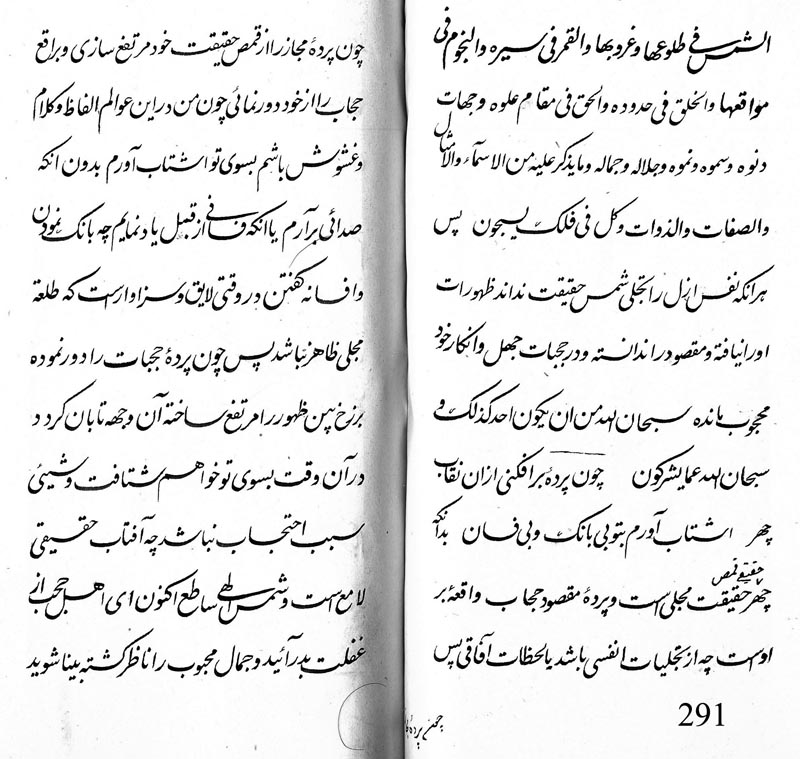 الشمس فی طلوعها وغروبها والقمر فی سیره والنجوم فی
مواقعها والخلق فی حدوده والحق فی مقام علوه وجهات
دنوه وسموه ونموه وجلاله وجماله وما یذکر علیه من الاسمآء والامثال
والصفات والذوات وکل فی فلک یسبحون پس
هرانکه نفس ازل را تجلی شمس حقیقت نداند ظهورات
اورا نیافته و مقصود را ندانسته و در حجبات جهل وانکار خود
محجوب مانده سبحان الله من ان یکون احد کذلک و
سبحان الله عما یشرکون چون پردهٔ برافکنی ازان نقاب
چهر اشتاب آورم بتو بی بانک وبی فسان بدآنکه
حقیقی قمص
چهر حقیقت مجلی است وپردهٔ مقصود حجاب واقعهٔ بر
اوست چه از تجلیات انفسی باشد یا لحظات آفاقی پس
291
چون پردهٔ
چون پردهٔ مجاز را از قمص حقیقت خود مرتفع سازی وبراقع
حجاب را از خود دور نمائی چون من در این عوالم الفاظ وکلام
وغشوش باشم بسوی تو اشتاب آورم بدون انکه
صدائی برآرم یا انکه فسانی از قبل یاد نمایم چه بانک نمودن
وافسانه کفتن در وقتی لایق وسزاوار است که طلعة
مجلی ظاهر نباشد پس چون پردهٔ حجبات را دور نموده
برزخ بین ظهور را مرتفع ساخته آن وجهه تابان کردد
در آن وقت بسوی تو خواهم شتافت وشیئی
سبب احتجاب نباشد چه آفتاب حقیقی
لامع است وشمس الهی ساطع اکنون ای اهل حجب از
غفلت بدر آئید وجمال محبوب را ناظر کشته بینا شوید